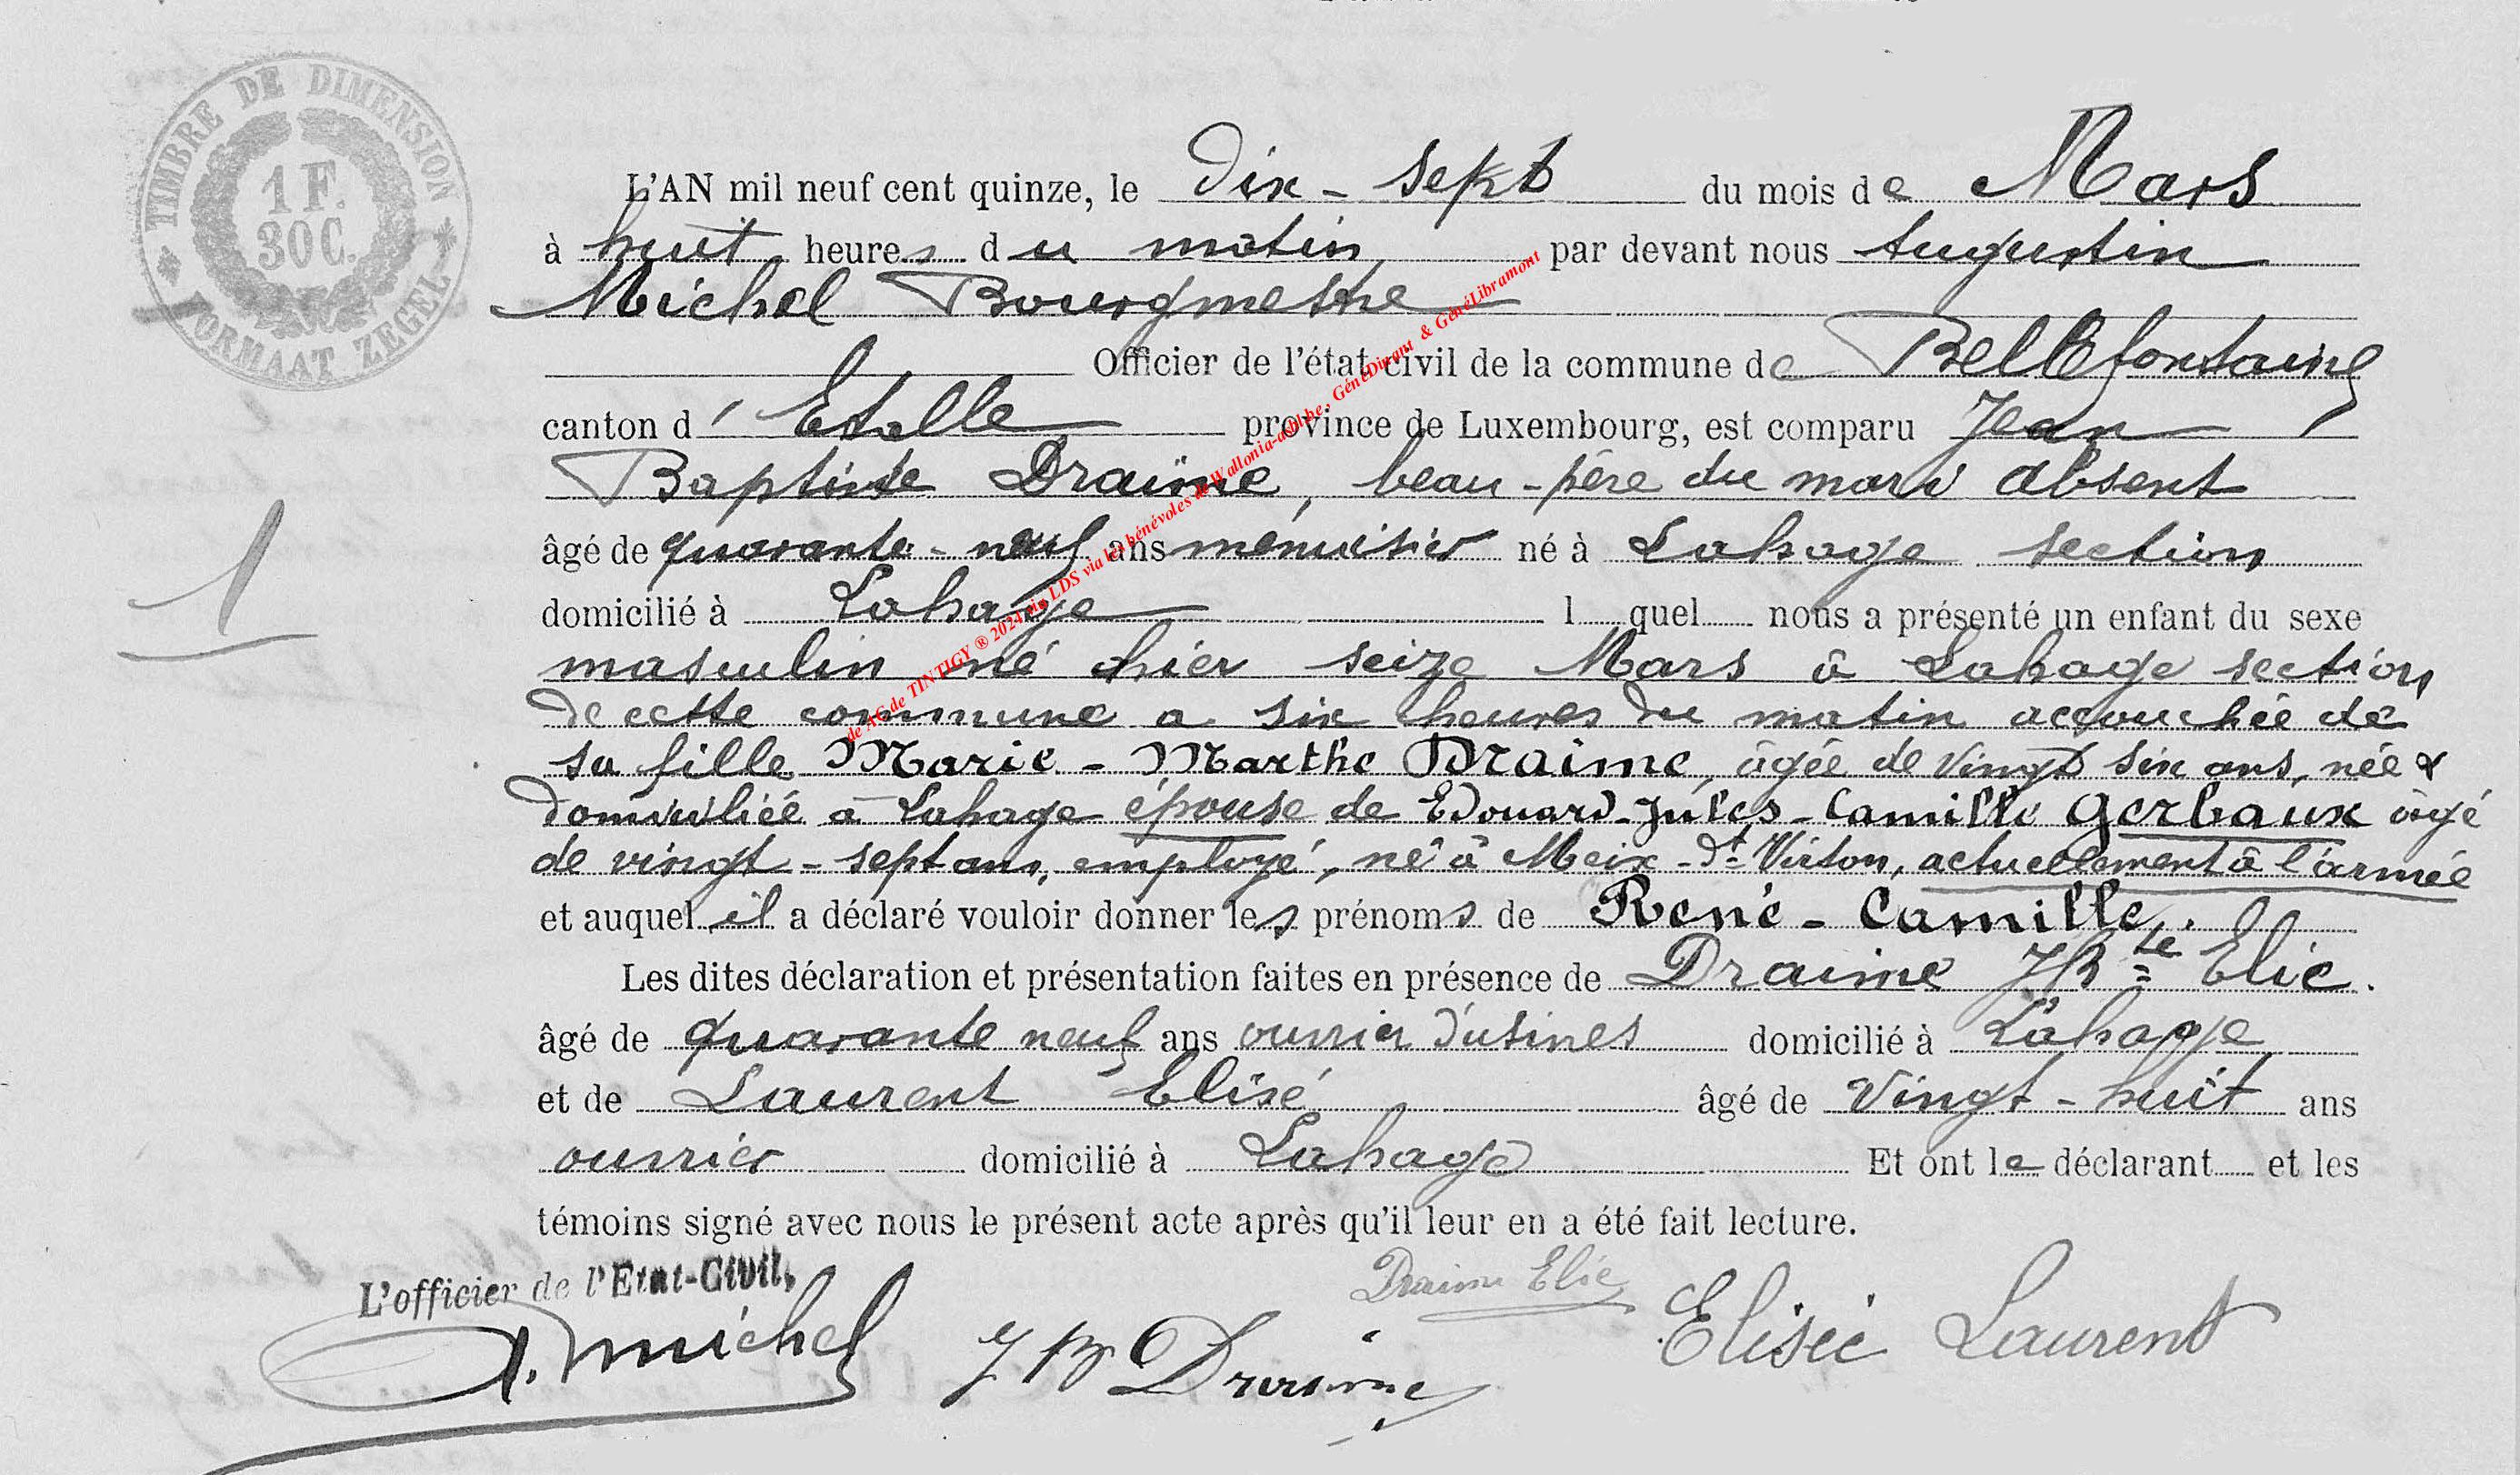 TIMBRE DE DIMENSION
1 F.
30 C.
FORMAAT ZEGEL
L'AN mil neuf cent quinze, le dix-sept du mois de Mars
à huit heures du matin par devant nous Augustin
Michel Bourgmestre
Officier de l'état civil de la commune de Bellefontaine
canton d'Etalle province de Luxembourg, est comparu Jean
Baptiste Draime, beau-père du mari absent
âgé de quarante-neuf ans menuisier né à Lahage section
domicilié à Lahage l quel nous a présenté un enfant du sexe
masculin né hier seize Mars à Lahage section
de cette commune a six heures du matin accouchée de
sa fille Marie-Marthe Draime, âgée de vingt six ans, née &
domiciliée à Lahage épouse de Edouard-Jules-Camille Gerbaux âgé
de vingt-sept ans, employé, né à Meix-dt-Virton, actuellement à l'armée
et auquel il a déclaré vouloir donner les prénoms de René-Camille.
Les dites déclaration et présentation faites en présence de Draime JBte Elie.
âgé de quarante neuf ans ouvrier d'usines domicilié à Lahage
et de Laurent Elisé âgé de vingt-huit ans
ouvrier domicilié à Lahage Et ont le déclarant et les
témoins signé avec nous le présent acte après qu'il leur en a été fait lecture.
L'officier de l'Etat-Civil,
A. Michel JB Draime Draime Elie Elisée Laurent
1
de AG de TINTIGY ® 2024 via LDS via les bénévoles de Wallonia-asbl.be, GénéDinant & GénéLibramont